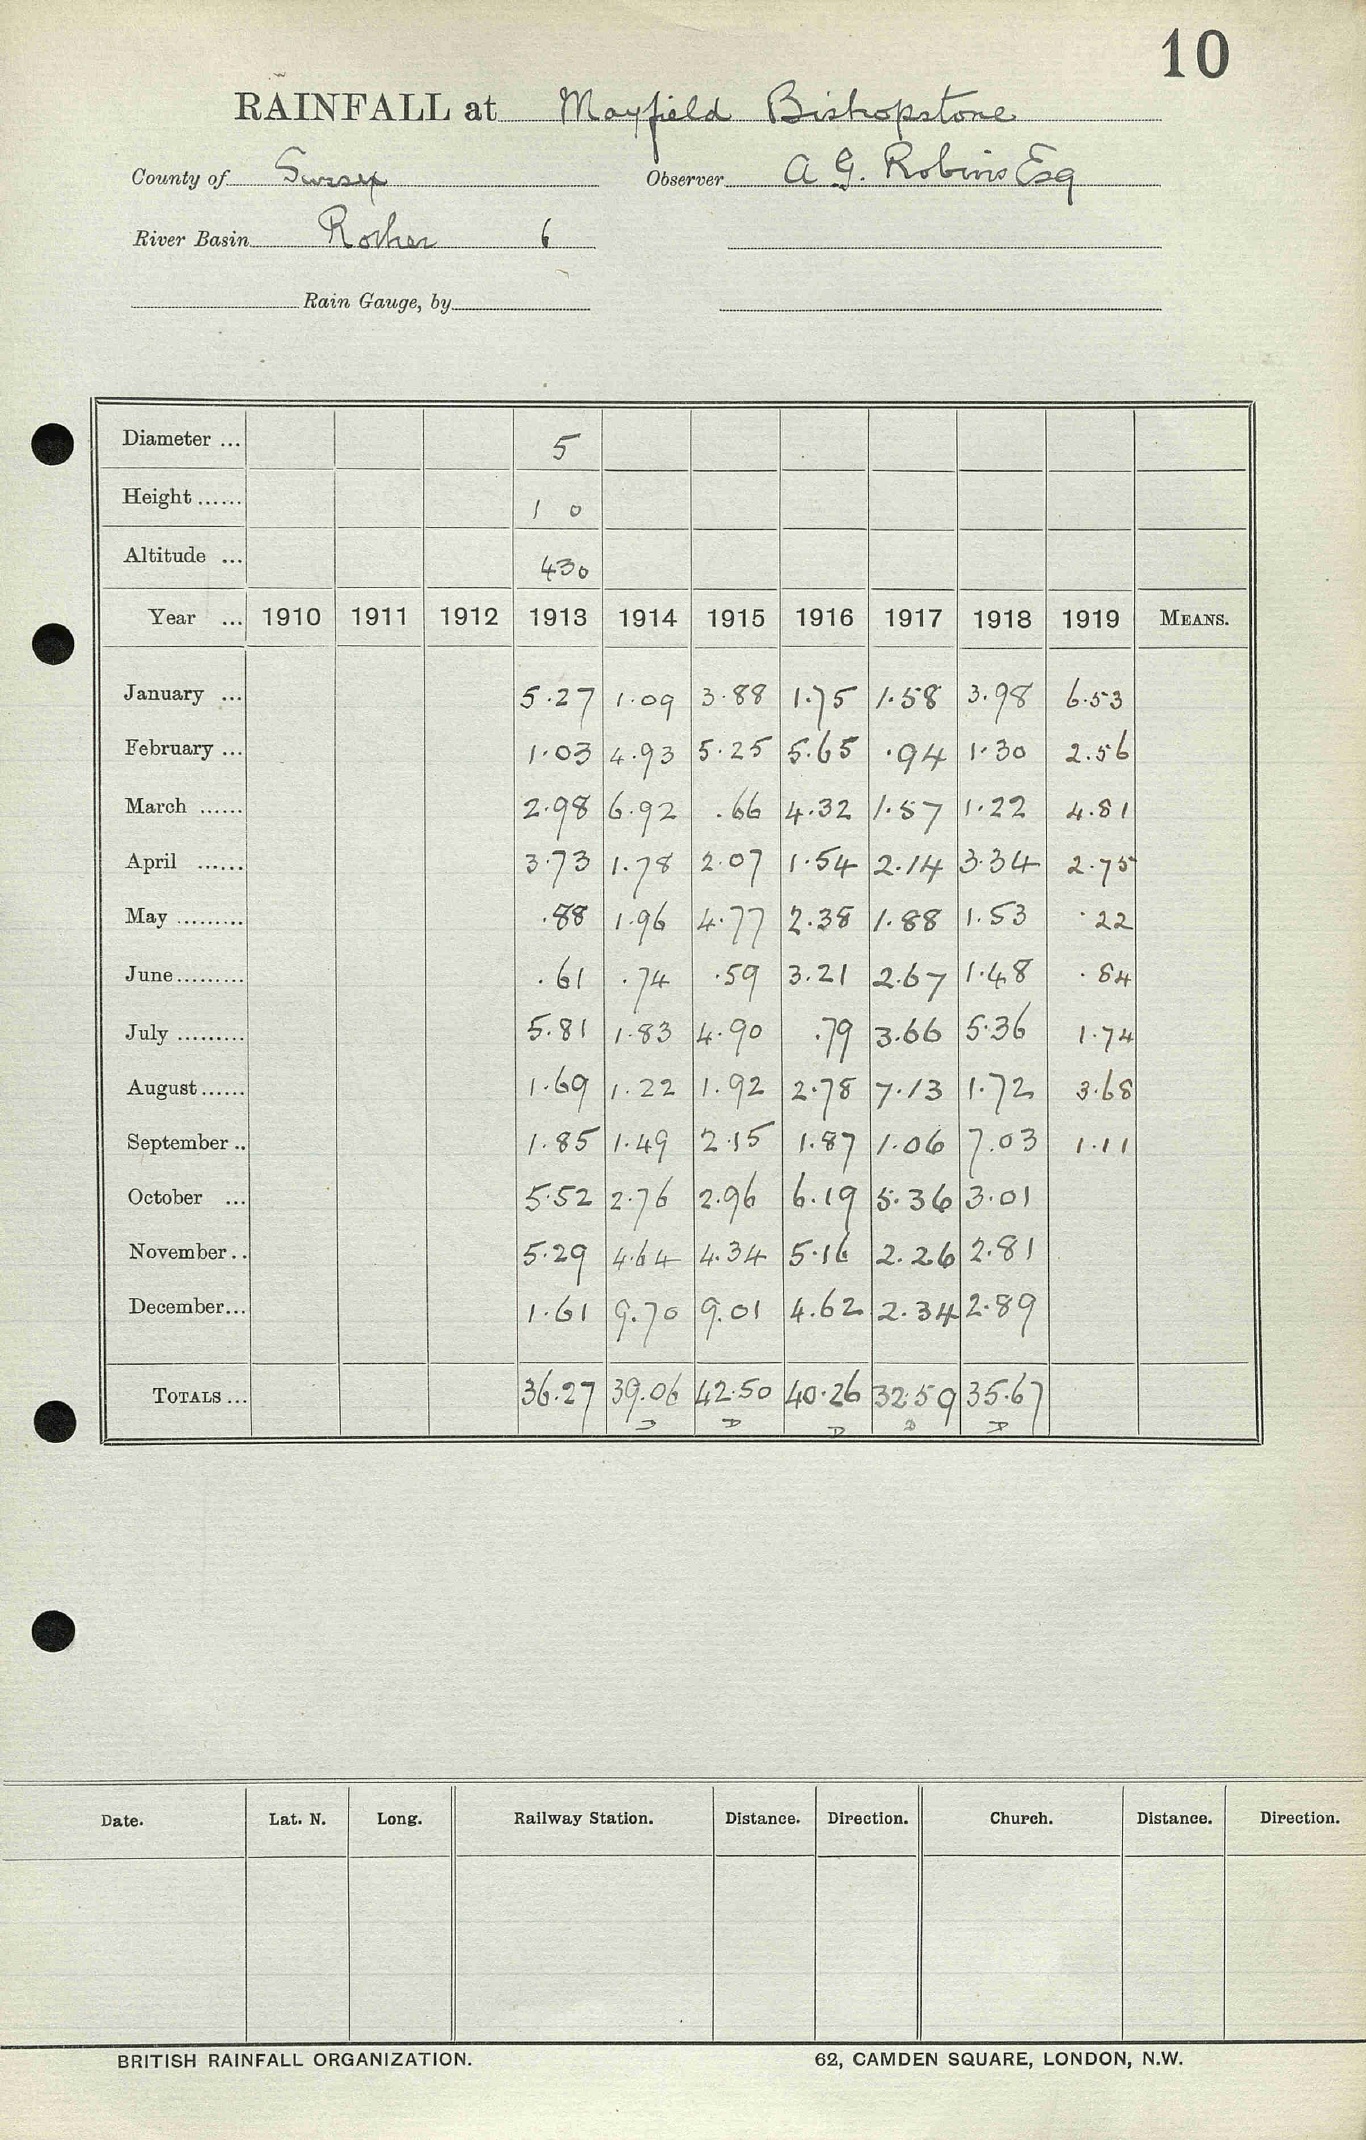 10
RAINFALL at Mayfield Bishopstone
County of Sussex Observer A G. Robins Esq
River Basin Rother 6
Rain Gauge, by
Diameter ... 5
Height ...... 1 0
Altitude ... 430
Year ... 1910 1911 1912 1913 1914 1915 1916 1917 1918 1919 MEANS.
January ... 5.27 1.09 3.88 1.75 1.58 3.98 6.53
February ... 1.03 4.93 5.25 5.65 .94 1.30 2.56
March ...... 2.98 6.92 .66 4.32 1.57 1.22 4.81
April ...... 3.73 1.78 2.07 1.54 2.14 3.34 2.75
May ......... .88 1.96 4.77 2.38 1.88 1.53 .22
June......... .61 .74 .59 3.21 2.67 1.48 .84
July ......... 5.81 1.83 4.90 .79 3.66 5.36 1.74
August ...... 1.69 1.22 1.92 2.78 7.13 1.72 3.68
September .. 1.85 1.49 2.15 1.87 1.06 7.03 1.11
October ... 5.52 2.76 2.96 6.19 5.36 3.01
November .. 5.29 4.64 4.34 5.16 2.26 2.81
December... 1.61 9.70 9.01 4.62 2.34 2.89
TOTALS ... 36.27 39.06 42.50 40.26 32.59 35.67
D D D D D
Date. Lat. N. Long. Railway Station. Distance. Direction. Church. Distance. Direction.
BRITISH RAINFALL ORGANIZATION. 62, CAMDEN SQUARE, LONDON, N.W.